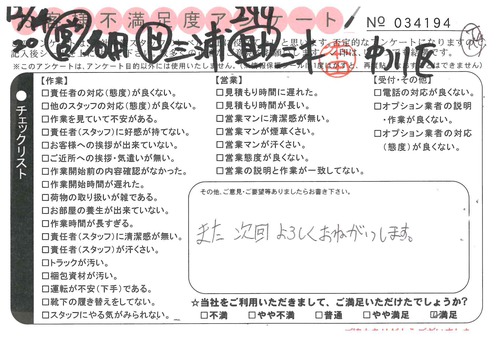 客様不満足度アンケート
No 034194
チェックリスト
【作業】
□責任者の対応(態度)が良くない。
□他のスタッフの対応(態度)が良くない。
□作業を見ていて不安がある。
□責任者(スタッフ)に好感が持てない。
□お客様への挨拶が出来ていない。
□ご近所への挨拶・気遣いが無い。
□作業開始前の内容確認がなかった。
□作業開始時間が遅れた。
□荷物の取り扱いが雑である。
□お部屋の養生が出来ていない。
□作業時間が長すぎる。
□責任者(スタッフ)に清潔感が無い。
□責任者(スタッフ)が汗くさい。
□トラックが汚い。
□梱包資材が汚い。
□運転が不安(下手)である。
□靴下の履き替えをしてない。
□スタッフにやる気がみられない。
【営業】
□見積もり時間に遅れた。
□見積もり時間が長い。
□営業マンに清潔感が無い。
□営業マンが煙草くさい。
□営業マンが汗くさい。
□営業態度が良くない。
□営業の説明と作業が一致してない。
【受付・その他】
□電話の対応が良くない。
□オプション業者の説明・作業が良くない。
□オプション業者の対応(態度)が良くない。
その他、ご意見・ご要望等ありましたらお書き下さい。
また 次回 よろしくおねがいします。
☆当社をご利用いただきまして、ご満足いただけたでしょうか?
□不満 □やや不満 □普通 □やや満足 ☑満足